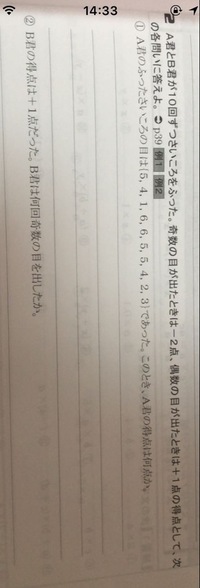 14:33
2 A君とB君が10回ずつさいころをふった。奇数の目が出たときは−2点、偶数の目が出たときは+1点の得点として、次
の各問いに答えよ。 p39 例1 例2
① A君のふったさいころの目は{5, 4, 1, 6, 6, 5, 5, 4, 2, 3}であった。このとき、A君の得点は何点か。
② B君の得点は+1点だった。B君は何回奇数の目を出したか。